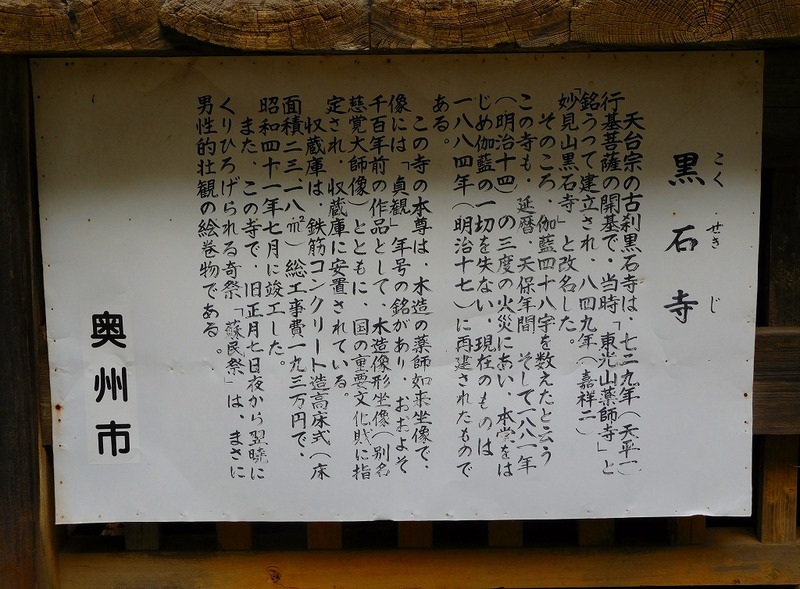 黒石寺
こくせきじ
天台宗の古刹黒石寺は、七二九年（天平一）
行基菩薩の開基で、当時「東光山薬師寺」と
銘うって建立され、八四九年（嘉祥二）
「妙見山黒石寺」と改名した。
そのころ、伽藍四十八宇を数えたと云う
この寺も、延暦、天保年間そして一八八一年
（明治十四）の三度の火災にあい、本堂をは
じめ伽藍の一切を失ない、現在のものは
一八八四年（明治十七）に再建されたもので
ある。
この寺の本尊は、木造の薬師如来坐像で、
像には「貞観」年号の銘があり、おおよそ
千百年前の作品として、木造僧形坐像（別名
慈覚大師像）とともに、国の重要文化財に指
定され、収蔵庫に安置されている。
収蔵庫は、鉄筋コンクリート造高床式（床
面積二三.一八㎡）総工事費一九三万円で、
昭和四十一年七月に竣工した。
また、この寺で、旧正月七日夜から翌暁に
くりひろげられる奇祭「蘇民祭」は、まさに
男性的壮観の絵巻物である。
奥州市